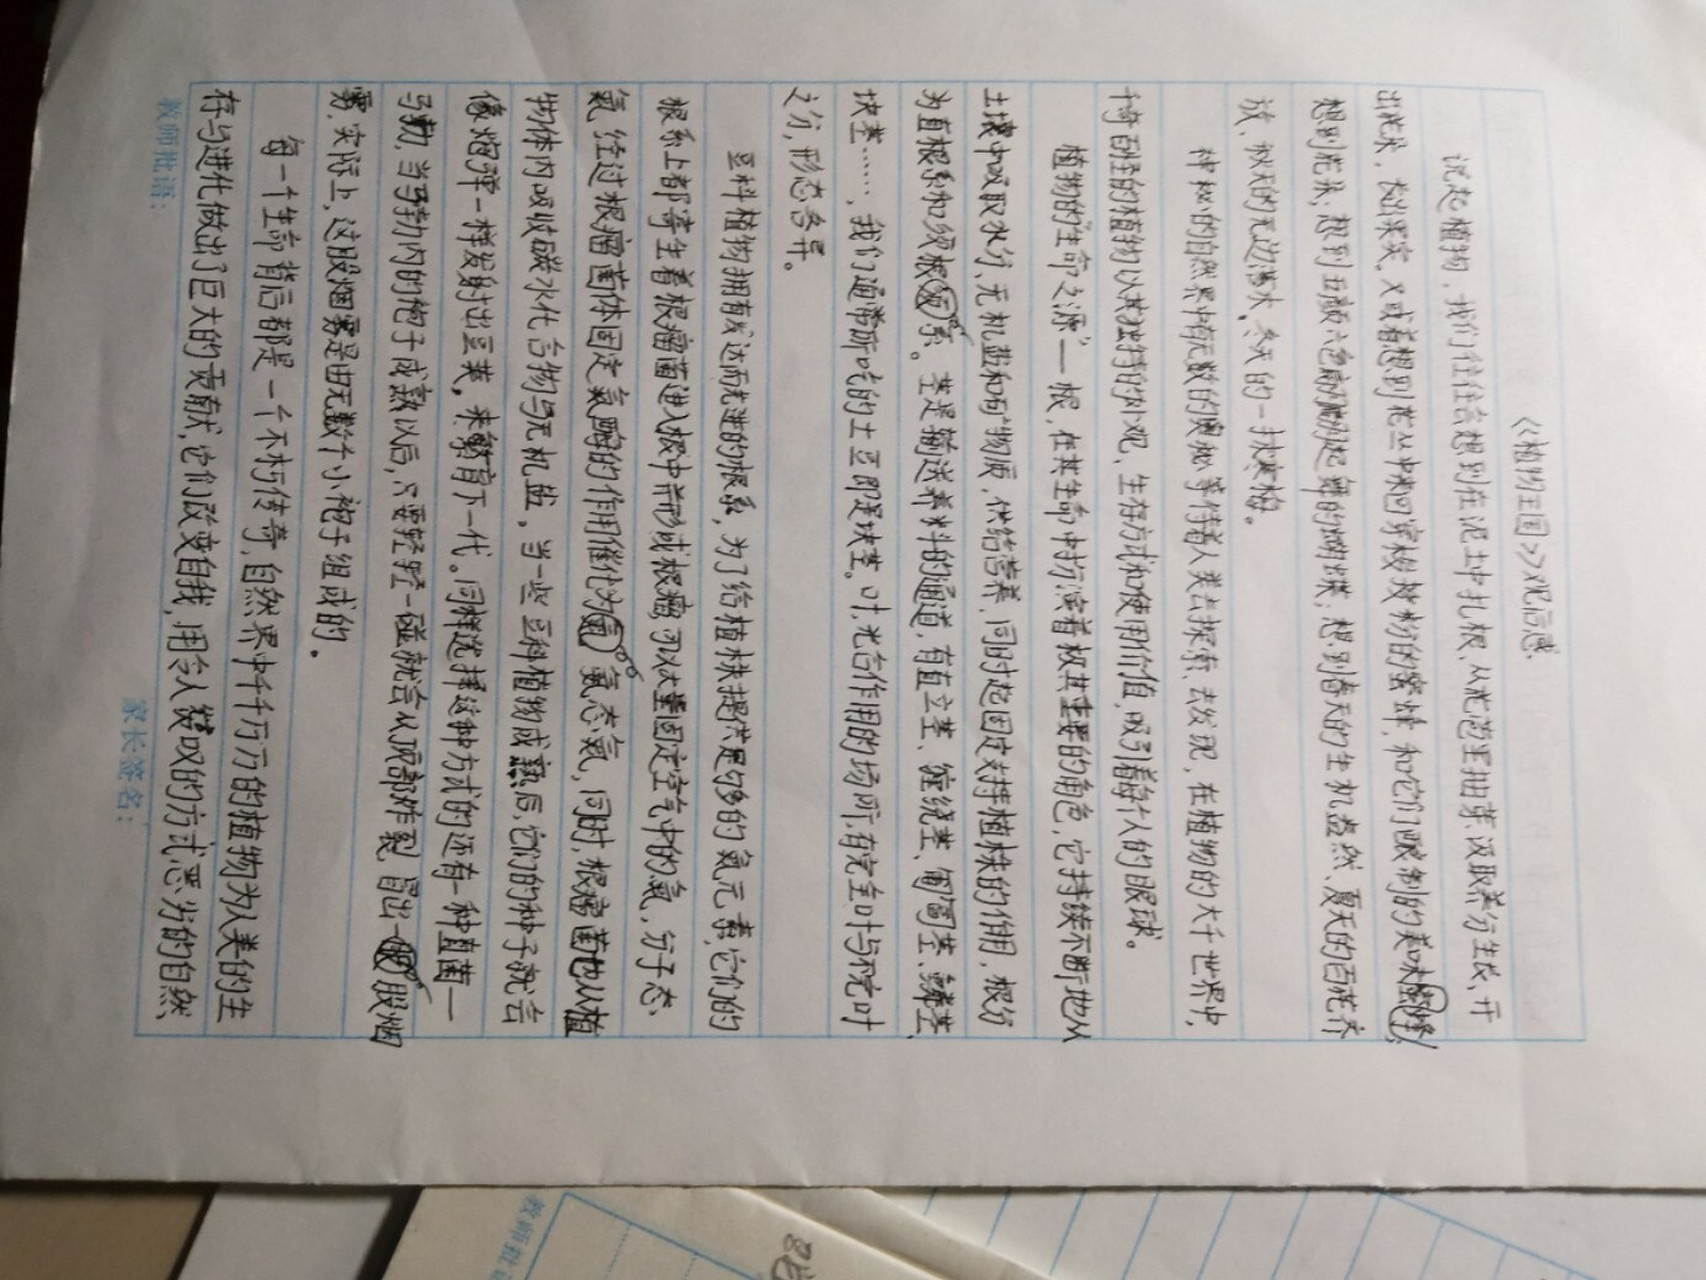 《植物王国》观后感
说起植物，我们往往会想到在泥土中扎根、从花苞里抽芽、汲取养分生长、开
出花朵，长出果实。又或者想到花丛中来回穿梭授粉的蜜蜂，和它们酿制的美味
想到花朵；想到五颜六色翩翩起舞的蝴蝶；想到春天的生机盎然、夏天的百花齐
放、秋天的无边落木、冬天的一抹寒梅。
神秘的自然界中有无数的奥秘等待着人类去探索、去发现，在植物的大千世界中，
千奇百怪的植物以其独特的外观、生存方式和使用价值，吸引着每个人的眼球。
植物的“生命之源”——根，在其生命中扮演着极其重要的角色，它持续不断地从
土壤中吸取水分、无机盐和有机物质，供给营养，同时起固定支持植株的作用，根分
为直根系和须根系。茎是输送养料的通道，有直立茎、缠绕茎、匍匐茎、鳞茎、
块茎……，我们通常所吃的土豆即是块茎。叶，光合作用的场所，有完全叶与不完全叶
之分，形态各异。
豆科植物拥有发达而先进的根系，为了给植株提供足够多的氮元素，它们的
根系上都寄生着根瘤菌进入根中并形成根瘤，可以大量固定空气中的氮，分子态
氮经过根瘤菌体固定氮酶的作用催化为氨态氮，同时，根瘤菌也从植
物体内吸收碳水化合物与无机盐。当一些豆科植物成熟后，它们的种子就会
像炮弹一样发射出豆荚，来繁育下一代。同样选择这种方式的还有一种真菌——
马勃，当马勃内的孢子成熟以后，只要轻轻一碰就会从顶部炸裂，冒出一股烟
雾，实际上，这股烟雾是由无数个小孢子组成的。
每一个生命背后都是一个不朽传奇，自然界中千千万万的植物为人类的生
存与进化做出了巨大的贡献，它们改变自我，用令人赞叹的方式恶劣的自然
教师批语：
家长签名：